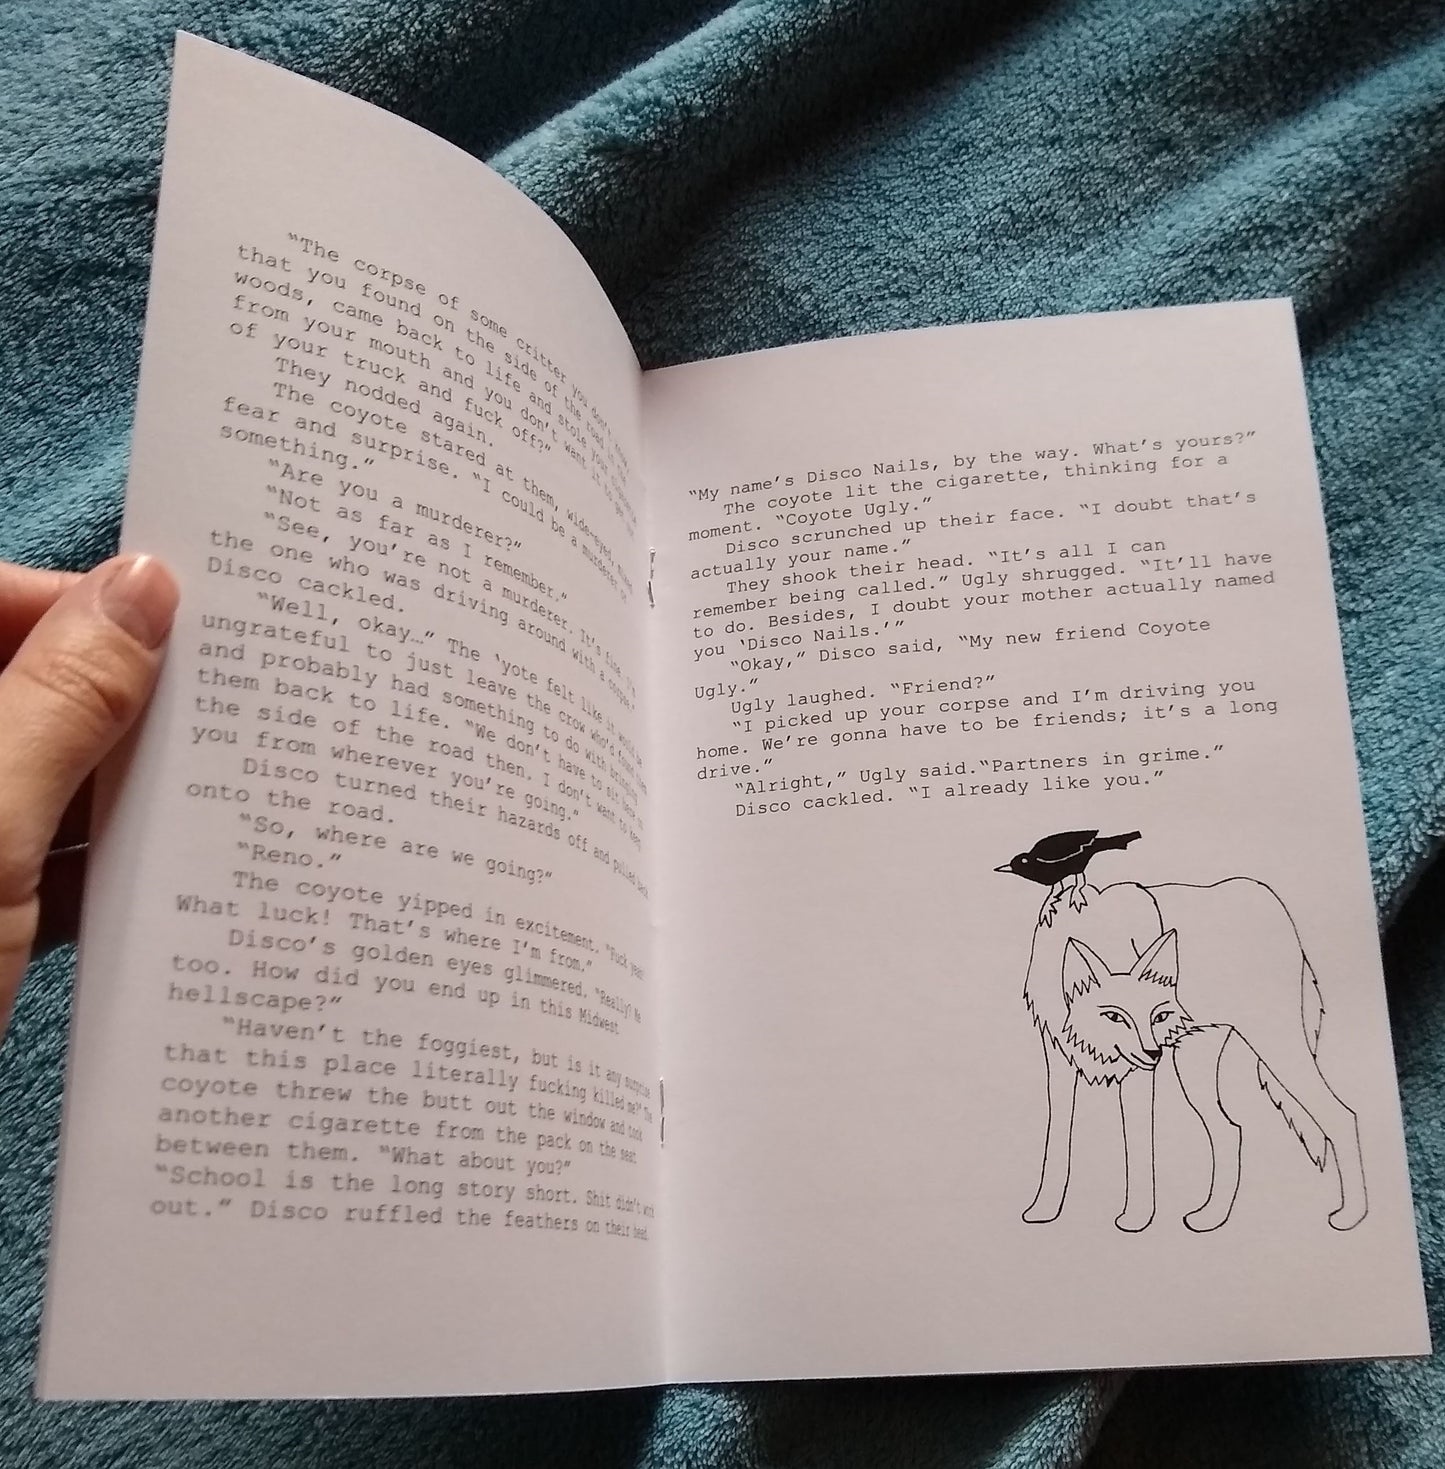 “The corpse of some critter you don’t know,
that you found on the side of the road in the
woods, came back to life and stole your cigarette
from your mouth and you don’t want it to get out
of your truck and fuck off?”
They nodded again.
The coyote stared at them, wide-eyed, mixed
fear and surprise. “I could be a murderer or
something.”
“Are you a murderer?”
“Not as far as I remember.”
“See, you’re not a murderer. It’s fine. I’m
the one who was driving around with a corpse.”
Disco cackled.
“Well, okay…” The ‘yote felt like it would be
ungrateful to just leave the crow who’d found them
and probably had something to do with bringing
them back to life. “We don’t have to sit here on
the side of the road then. I don’t want to keep
you from wherever you’re going.”
Disco turned their hazards off and pulled back
onto the road.
“So, where are we going?”
“Reno.”
The coyote yipped in excitement. “Fuck yeah!
What luck! That’s where I’m from.”
Disco’s golden eyes glimmered. “Really? Me
too. How did you end up in this Midwest
hellscape?”
“Haven’t the foggiest, but is it any surprise
that this place literally fucking killed me?” The
coyote threw the butt out the window and took
another cigarette from the pack on the seat
between them. “What about you?”
“School is the long story short. Shit didn’t work
out.” Disco ruffled the feathers on their head.
“My name’s Disco Nails, by the way. What’s yours?”
The coyote lit the cigarette, thinking for a
moment. “Coyote Ugly.”
Disco scrunched up their face. “I doubt that’s
actually your name.”
They shook their head. “It’s all I can
remember being called.” Ugly shrugged. “It’ll have
to do. Besides, I doubt your mother actually named
you ‘Disco Nails.’”
“Okay,” Disco said, “My new friend Coyote
Ugly.”
Ugly laughed. “Friend?”
“I picked up your corpse and I’m driving you
home. We’re gonna have to be friends; it’s a long
drive.”
“Alright,” Ugly said.“Partners in grime.”
Disco cackled. “I already like you.”